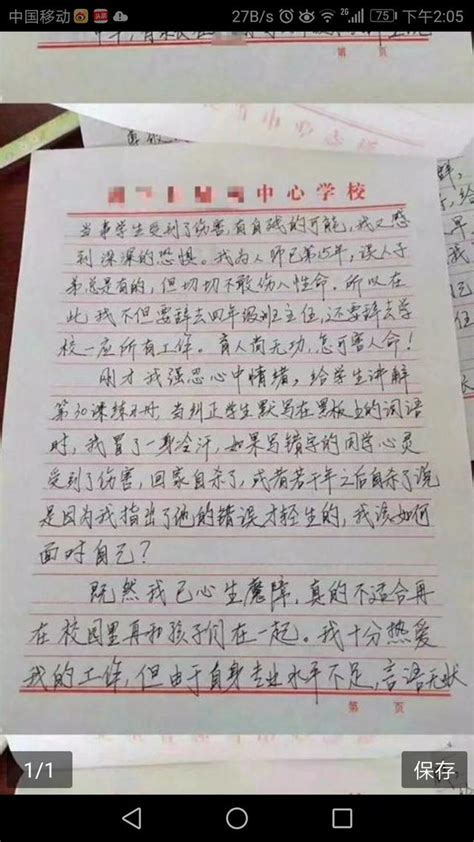 中国移动 27B/s 2G 75 下午2:05
第 页
中心学校
当事学生受到了伤害,有自残的可能,我又感
到深深的恐惧。我为人师已第15年,误人子
弟总是有的,但切切不敢伤人性命。所以在
此,我不但要辞去四年级班主任,还要辞去学
校一应所有工作。育人尚无功,怎可害人命!
刚才我强忍心中情绪,给学生讲解
第30课练习册,当纠正学生默写在黑板上的词语
时,我冒了一身冷汗,如果写错字的同学心灵
受到了伤害,回家自杀了,或者若干年之后自杀了说
是因为我指出了他的错误才轻生的,我该如何
面对自己?
既然我已心生魔障,真的不适合再
在校园里再和孩子们在一起。我十分热爱
我的工作,但由于自身专业水平不足,言语无状
第 页
1/1
保存